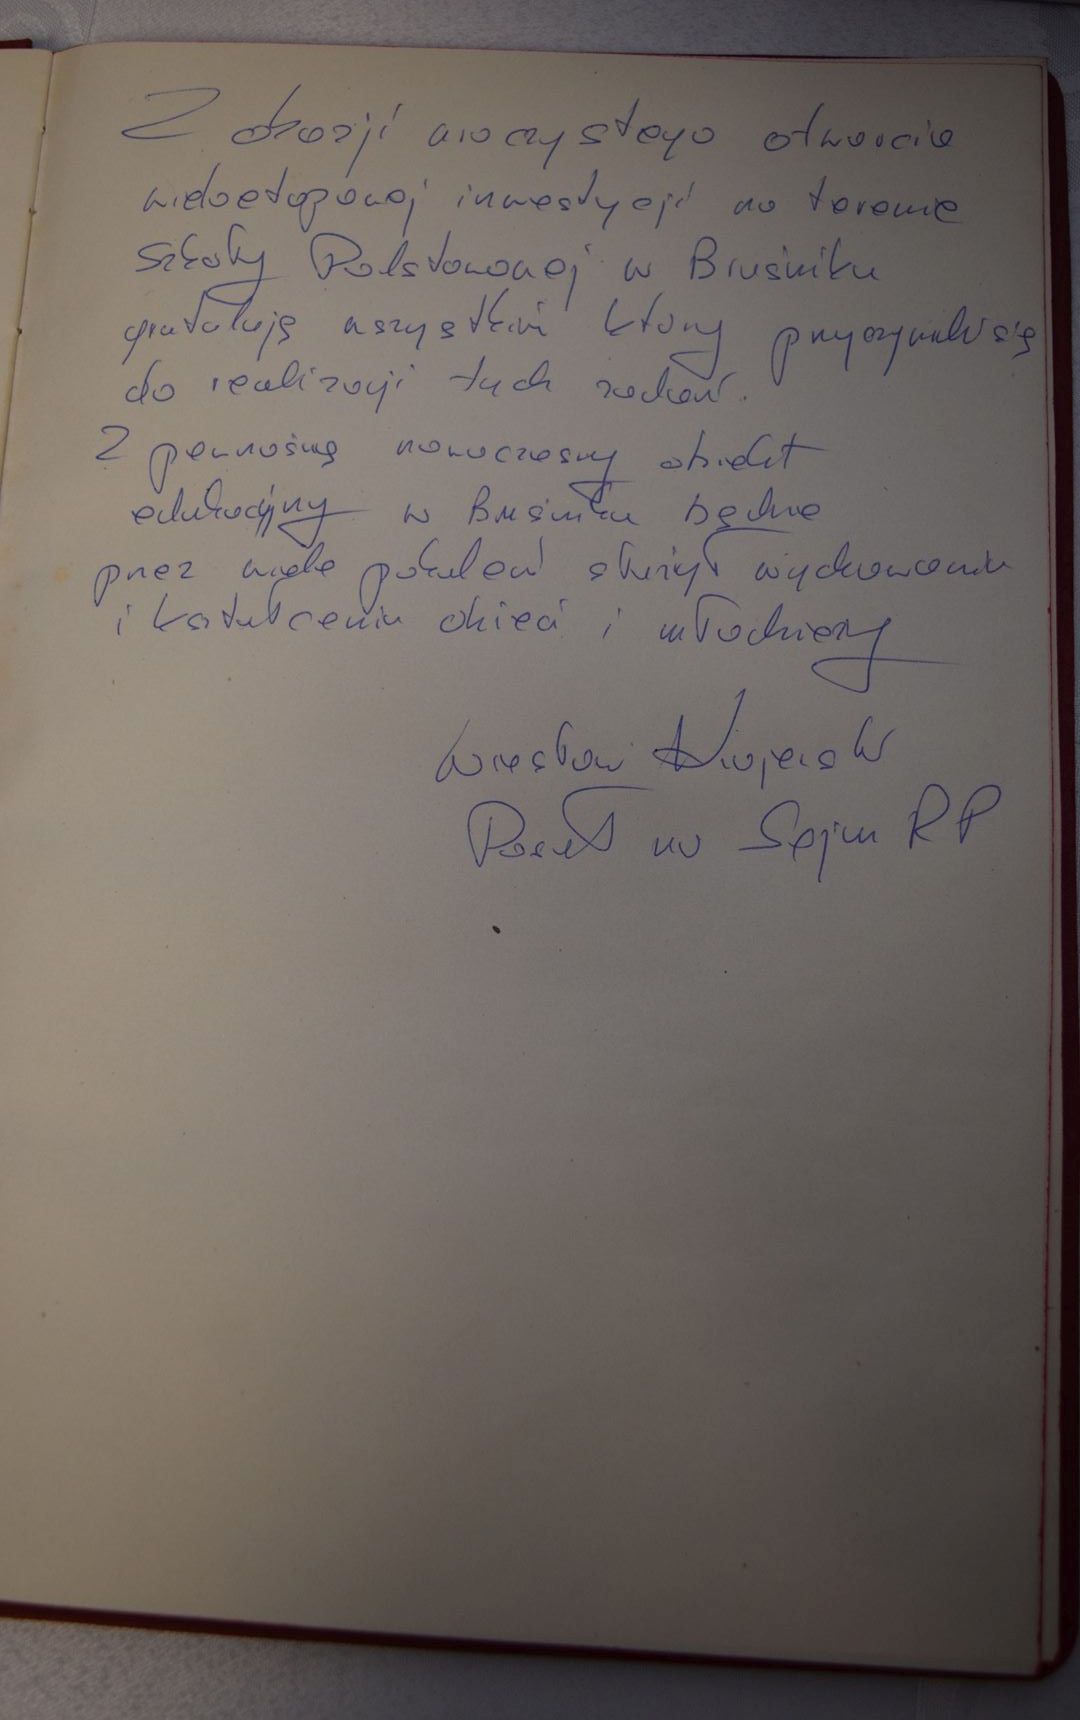 Z okazji uroczystego otwarcia
wieloetapowej inwestycji na terenie
Szkoły Podstawowej w Bruśniku
gratuluję wszystkim którzy przyczynili się
do realizacji tych zadań.
Z pewnością nowoczesny obiekt
edukacyjny w Bruśniku będzie
przez wiele pokoleń służył wychowaniu
i kształceniu dzieci i młodzieży
Wiesław Krajewski
Poseł na Sejm RP